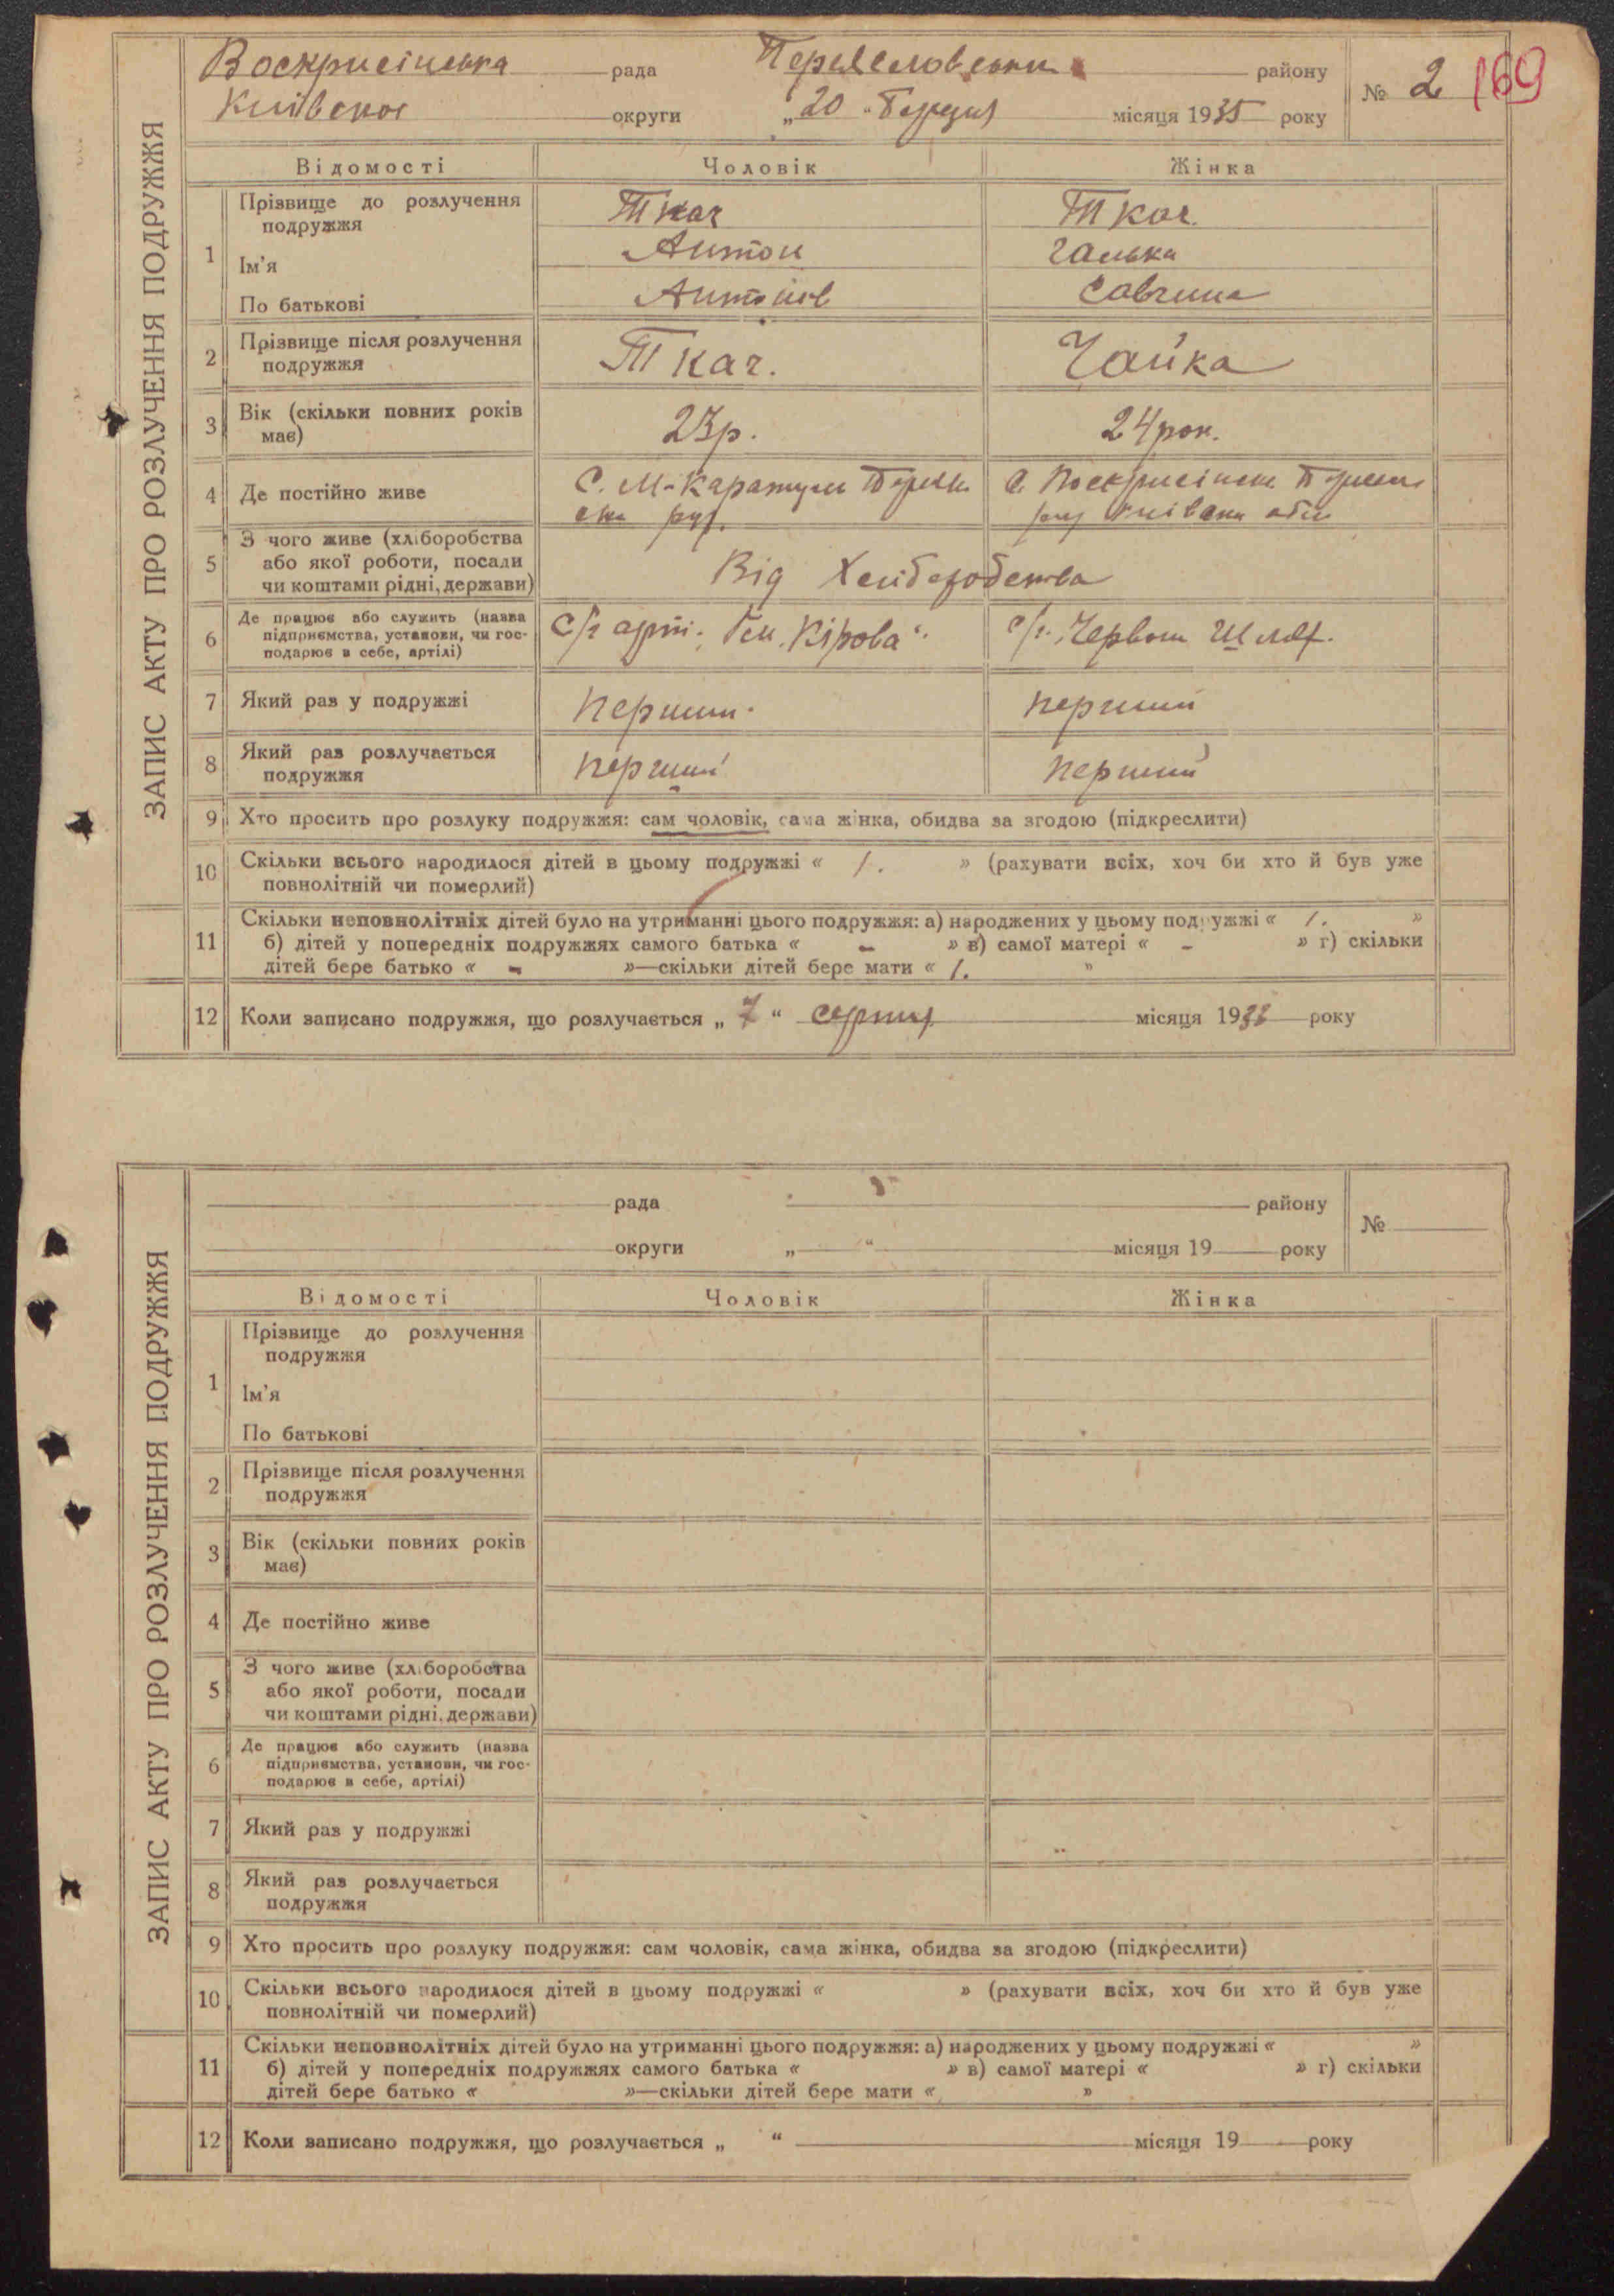 ЗАПИС АКТУ ПРО РОЗЛУЧЕННЯ ПОДРУЖЖЯ
Воскрисінська рада району № 2 169
округи „20“ місяця 1935 року
Відомості Чоловік Жінка
1 Прізвище до розлучення подружжя Ткач Ткач
Ім'я Антон Галька
По батькові Антонів Савчина
2 Прізвище після розлучення подружжя Ткач. Чайка
3 Вік (скільки повних років має) 23р. 24 рок.
4 Де постійно живе С. М-Каратули С.
5 З чого живе (хліборобства або якої роботи, посади чи коштами рідні, держави) Від Хліборобства
6 Де працює або служить (назва підприємства, установи, чи господарює в себе, артілі) С/г арт. „Кірова“. с/г. Червон Шлях.
7 Який раз у подружжі перший перший
8 Який раз розлучається подружжя перший перший
9 Хто просить про розлуку подружжя: сам чоловік, сама жінка, обидва за згодою (підкреслити)
10 Скільки всього народилося дітей в цьому подружжі « 1. » (рахувати всіх, хоч би хто й був уже
повнолітній чи померлий)
11 Скільки неповнолітніх дітей було на утриманні цього подружжя: а) народжених у цьому подружжі « 1. »
б) дітей у попередніх подружжях самого батька « - » в) самої матері « - » г) скільки
дітей бере батько « - »—скільки дітей бере мати « 1. »
12 Коли записано подружжя, що розлучається „ 7 “ серпня місяця 193 року
ЗАПИС АКТУ ПРО РОЗЛУЧЕННЯ ПОДРУЖЖЯ
рада району №
округи „ “ місяця 19 року
Відомості Чоловік Жінка
1 Прізвище до розлучення
подружжя
Ім'я
По батькові
2 Прізвище після розлучення
подружжя
3 Вік (скільки повних років
має)
4 Де постійно живе
5 З чого живе (хліборобства
або якої роботи, посади
чи коштами рідні, держави)
6 Де працює або служить (назва
підприємства, установи, чи гос-
подарює в себе, артілі)
7 Який раз у подружжі
8 Який раз розлучається
подружжя
9 Хто просить про розлуку подружжя: сам чоловік, сама жінка, обидва за згодою (підкреслити)
10 Скільки всього народилося дітей в цьому подружжі « » (рахувати всіх, хоч би хто й був уже
повнолітній чи померлий)
11 Скільки неповнолітніх дітей було на утриманні цього подружжя: а) народжених у цьому подружжі « »
б) дітей у попередніх подружжях самого батька « » в) самої матері « » г) скільки
дітей бере батько « »—скільки дітей бере мати « »
12 Коли записано подружжя, що розлучається „ “ місяця 19 року